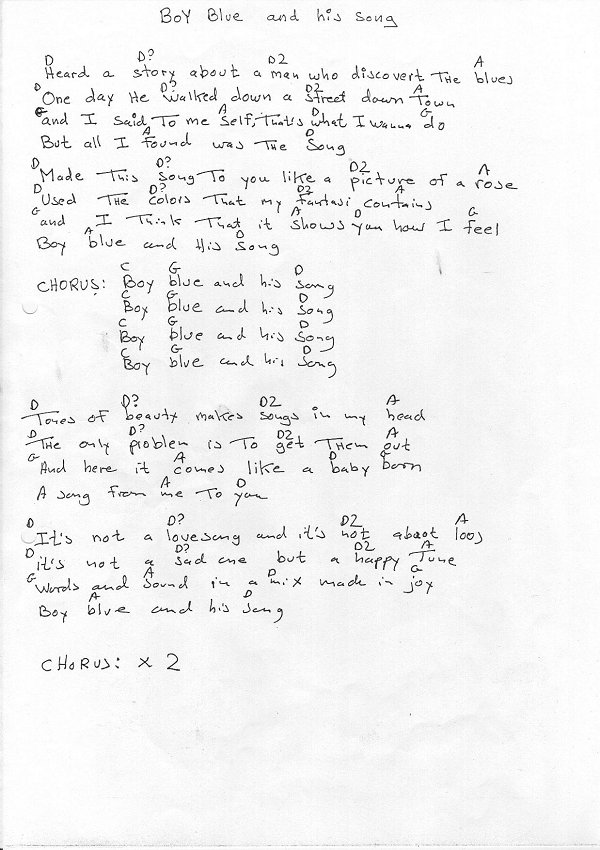 BoY Blue and his song
D D? D2 A
Heard a story about a man who discovert THe blues
D D? D2 A
One day He walked down a street down Town
G A D G
and I said To me self, That's what I wanna do
A D
But all I found was The Song
D D? D2 A
Made This song To you like a picture of a rose
D D? D2 A
Used THe colors That my fantasi contains
G A D G
and I Think That it shows you how I feel
A D
Boy blue and His song
C G D
CHORUS: Boy blue and his song
C G D
Boy blue and his song
C G D
Boy blue and his song
C G D
Boy blue and his song
D D? D2 A
Tones of beauty makes songs in my head
D D? D2 A
THe only problem is To get THem out
G A D G
And here it comes like a baby born
A D
A song from me To you
D D? D2 A
It's not a lovesong and it's not about loos
D D? D2 A
it's not a sad one but a happy Tune
G A D G
Words and sound in a mix made in joy
A D
Boy blue and his song
CHORUS: x 2